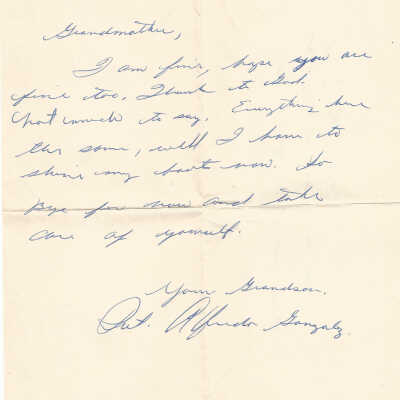 Grandmother,
I am fine, hope you are
fine too, Thank to God.
Not much to say. Everything here
the same, well I have to
shine my boots now. So
Bye for now and take
care of yourself.
Your Grandson.
Pvt. Alfredo Gonzalez.